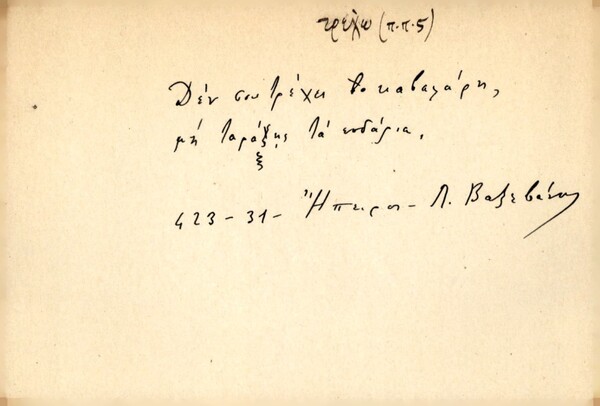 τρέχω (π.π.5)
Δέν σου τρέχει το καβαλάρη,
μή ταράξῃς τά
ξ
423 - 31 - Ἤπειρος - Λ. Βαζεβάνης